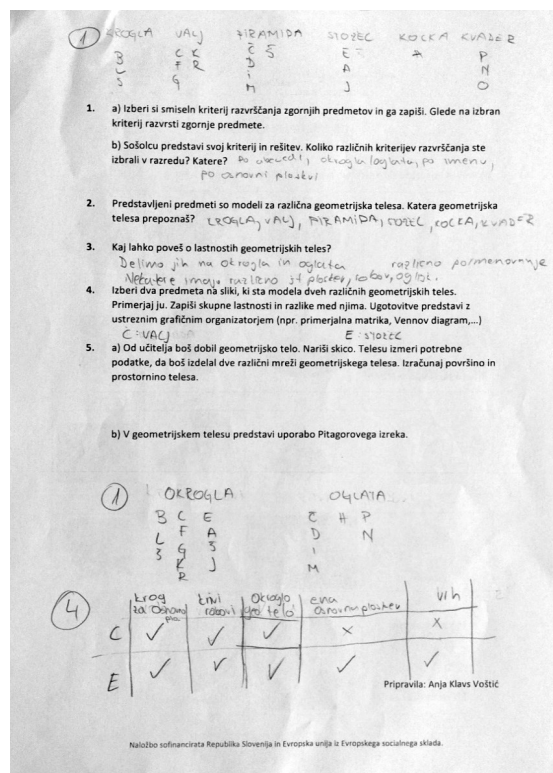 1 KROGLA VALJ PIRAMIDA STOŽEC KOCKA KVADER
B C K Č Š E H P
L F R D A N
S G I J O
M
1. a) Izberi si smiseln kriterij razvrščanja zgornjih predmetov in ga zapiši. Glede na izbran
kriterij razvrsti zgornje predmete.
b) Sošolcu predstavi svoj kriterij in rešitev. Koliko različnih kriterijev razvrščanja ste
izbrali v razredu? Katere? Po obsedi, okrogla/oglata, po imenu,
po osnovni ploskvi
2. Predstavljeni predmeti so modeli za različna geometrijska telesa. Katera geometrijska
telesa prepoznaš? KROGLA, VALJ, PIRAMIDA, STOŽEC, KOCKA, KVADER
3. Kaj lahko poveš o lastnostih geometrijskih teles?
Delimo jih na okrogla in oglata različno poimenovanje
Nekatere imajo različno št ploskev, robov, oglišč.
4. Izberi dva predmeta na sliki, ki sta modela dveh različnih geometrijskih teles.
Primerjaj ju. Zapiši skupne lastnosti in razlike med njima. Ugotovitve predstavi z
ustreznim grafičnim organizatorjem (npr. primerjalna matrika, Vennov diagram,...)
C: VALJ E: STOŽEC
5. a) Od učitelja boš dobil geometrijsko telo. Nariši skico. Telesu izmeri potrebne
podatke, da boš izdelal dve različni mreži geometrijskega telesa. Izračunaj površino in
prostornino telesa.
b) V geometrijskem telesu predstavi uporabo Pitagorovega izreka.
1 OKROGLA OGLATA
B C E Č H P
L F A D N
S G Š I
K J M
R
4 krog za osnovno plo. krivi robovi okroglo geo telo ena osnovna ploskev vrh
C ✓ ✓ ✓ × ×
E ✓ ✓ ✓ ✓ ✓
Pripravila: Anja Klavs Voštić
Naložbo sofinancirata Republika Slovenija in Evropska unija iz Evropskega socialnega sklada.